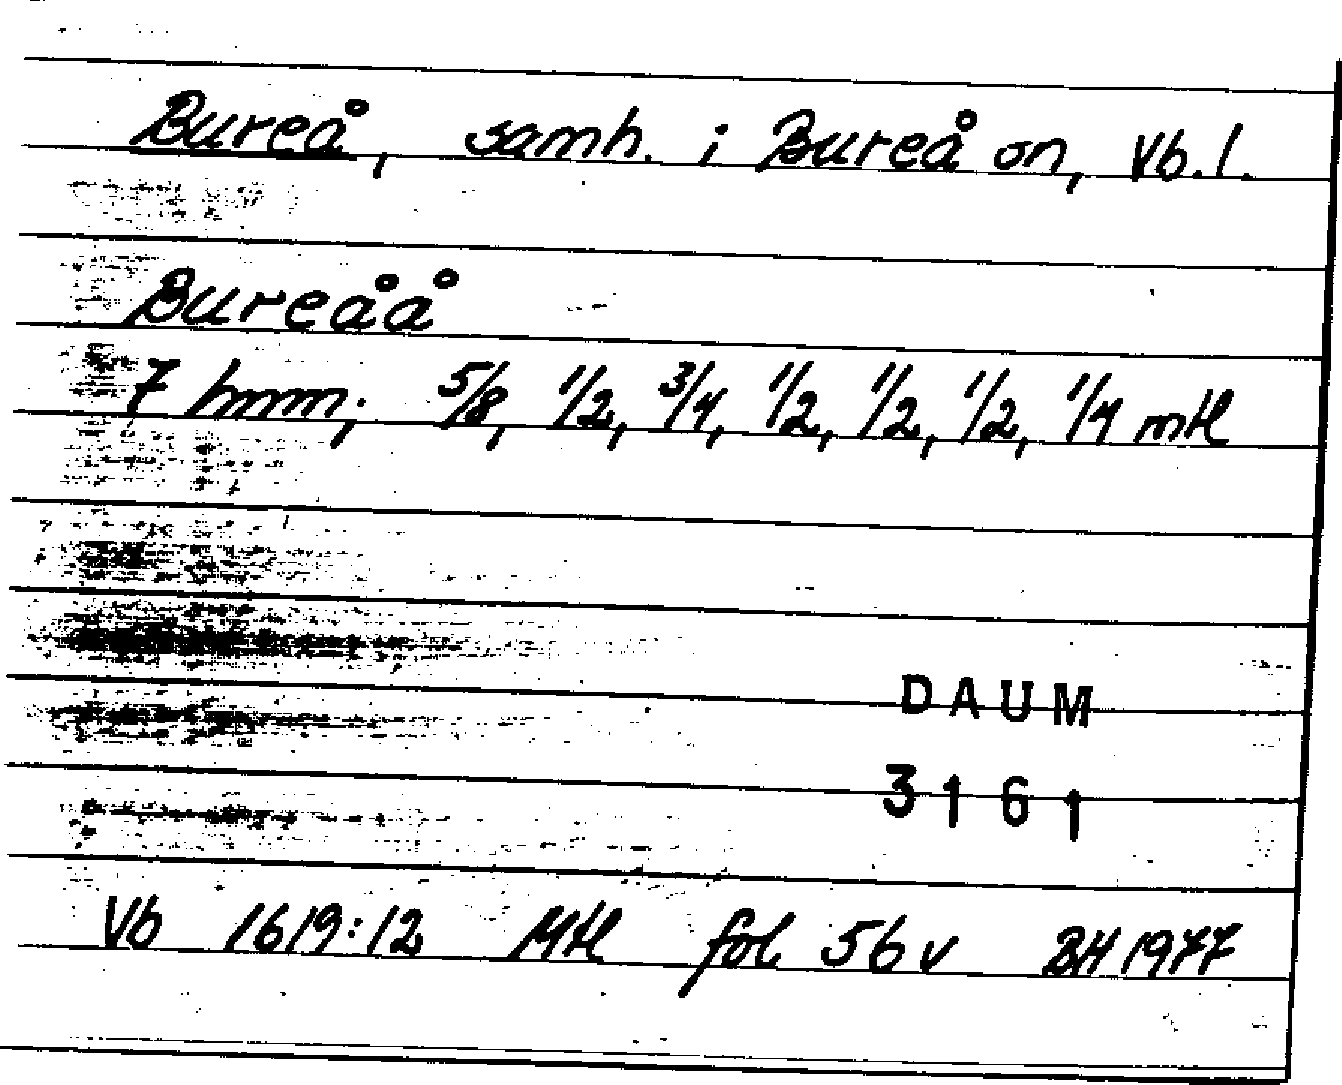 Bureå, samh. i Bureå sn, Vb.l.
Bureåå
7 hmm; 5/8, 1/2, 3/4, 1/2, 1/2, 1/2, 1/4 mtl
DAUM
3161
Vb 1619:12 Mtl fol 56 v BH 1977